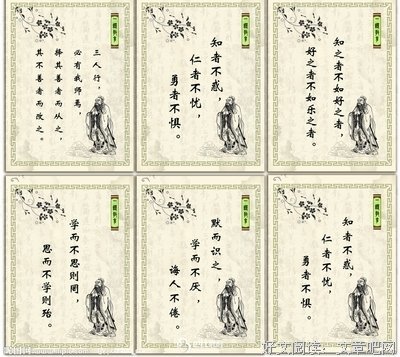 三人行，
必有我师焉，
择其善者而从之，
其不善者而改之。
知者不惑，
仁者不忧，
勇者不惧。
知之者不如好之者，
好之者不如乐之者。
学而不思则罔，
思而不学则殆。
默而识之，
学而不厌，
诲人不倦。
知者不惑，
仁者不忧，
勇者不惧。
好文阅读：一文章吧网